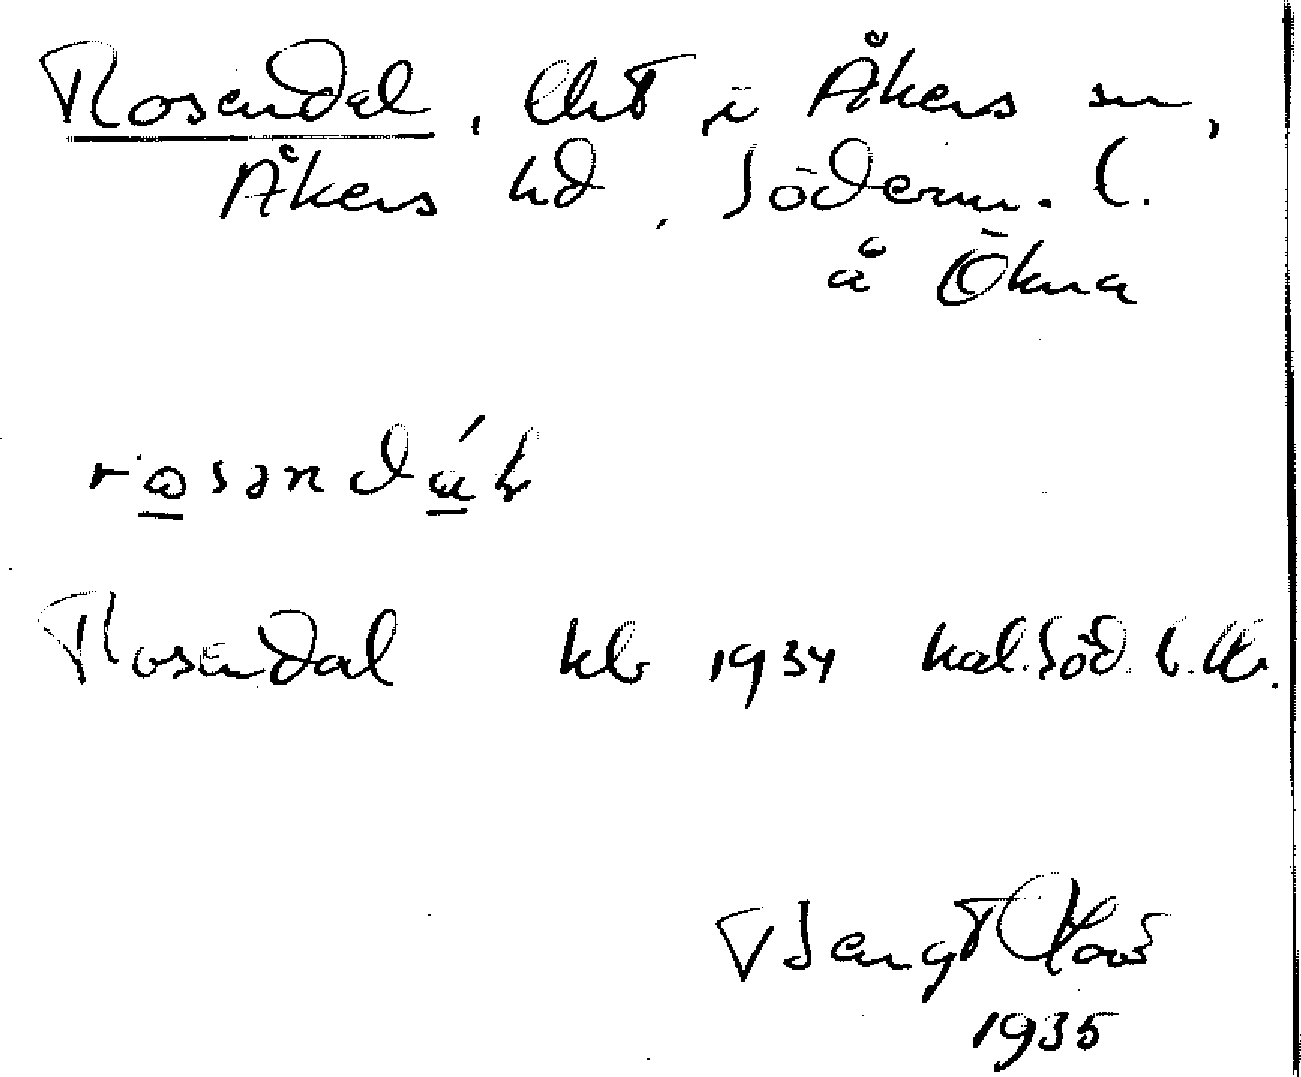 Rosendal, lht i Åkers sn,
Åkers hd, Söderm. l.
å Ökna
rosəndál
Rosendal hb 1934 kal. Söd. l. 
Bengt
1935